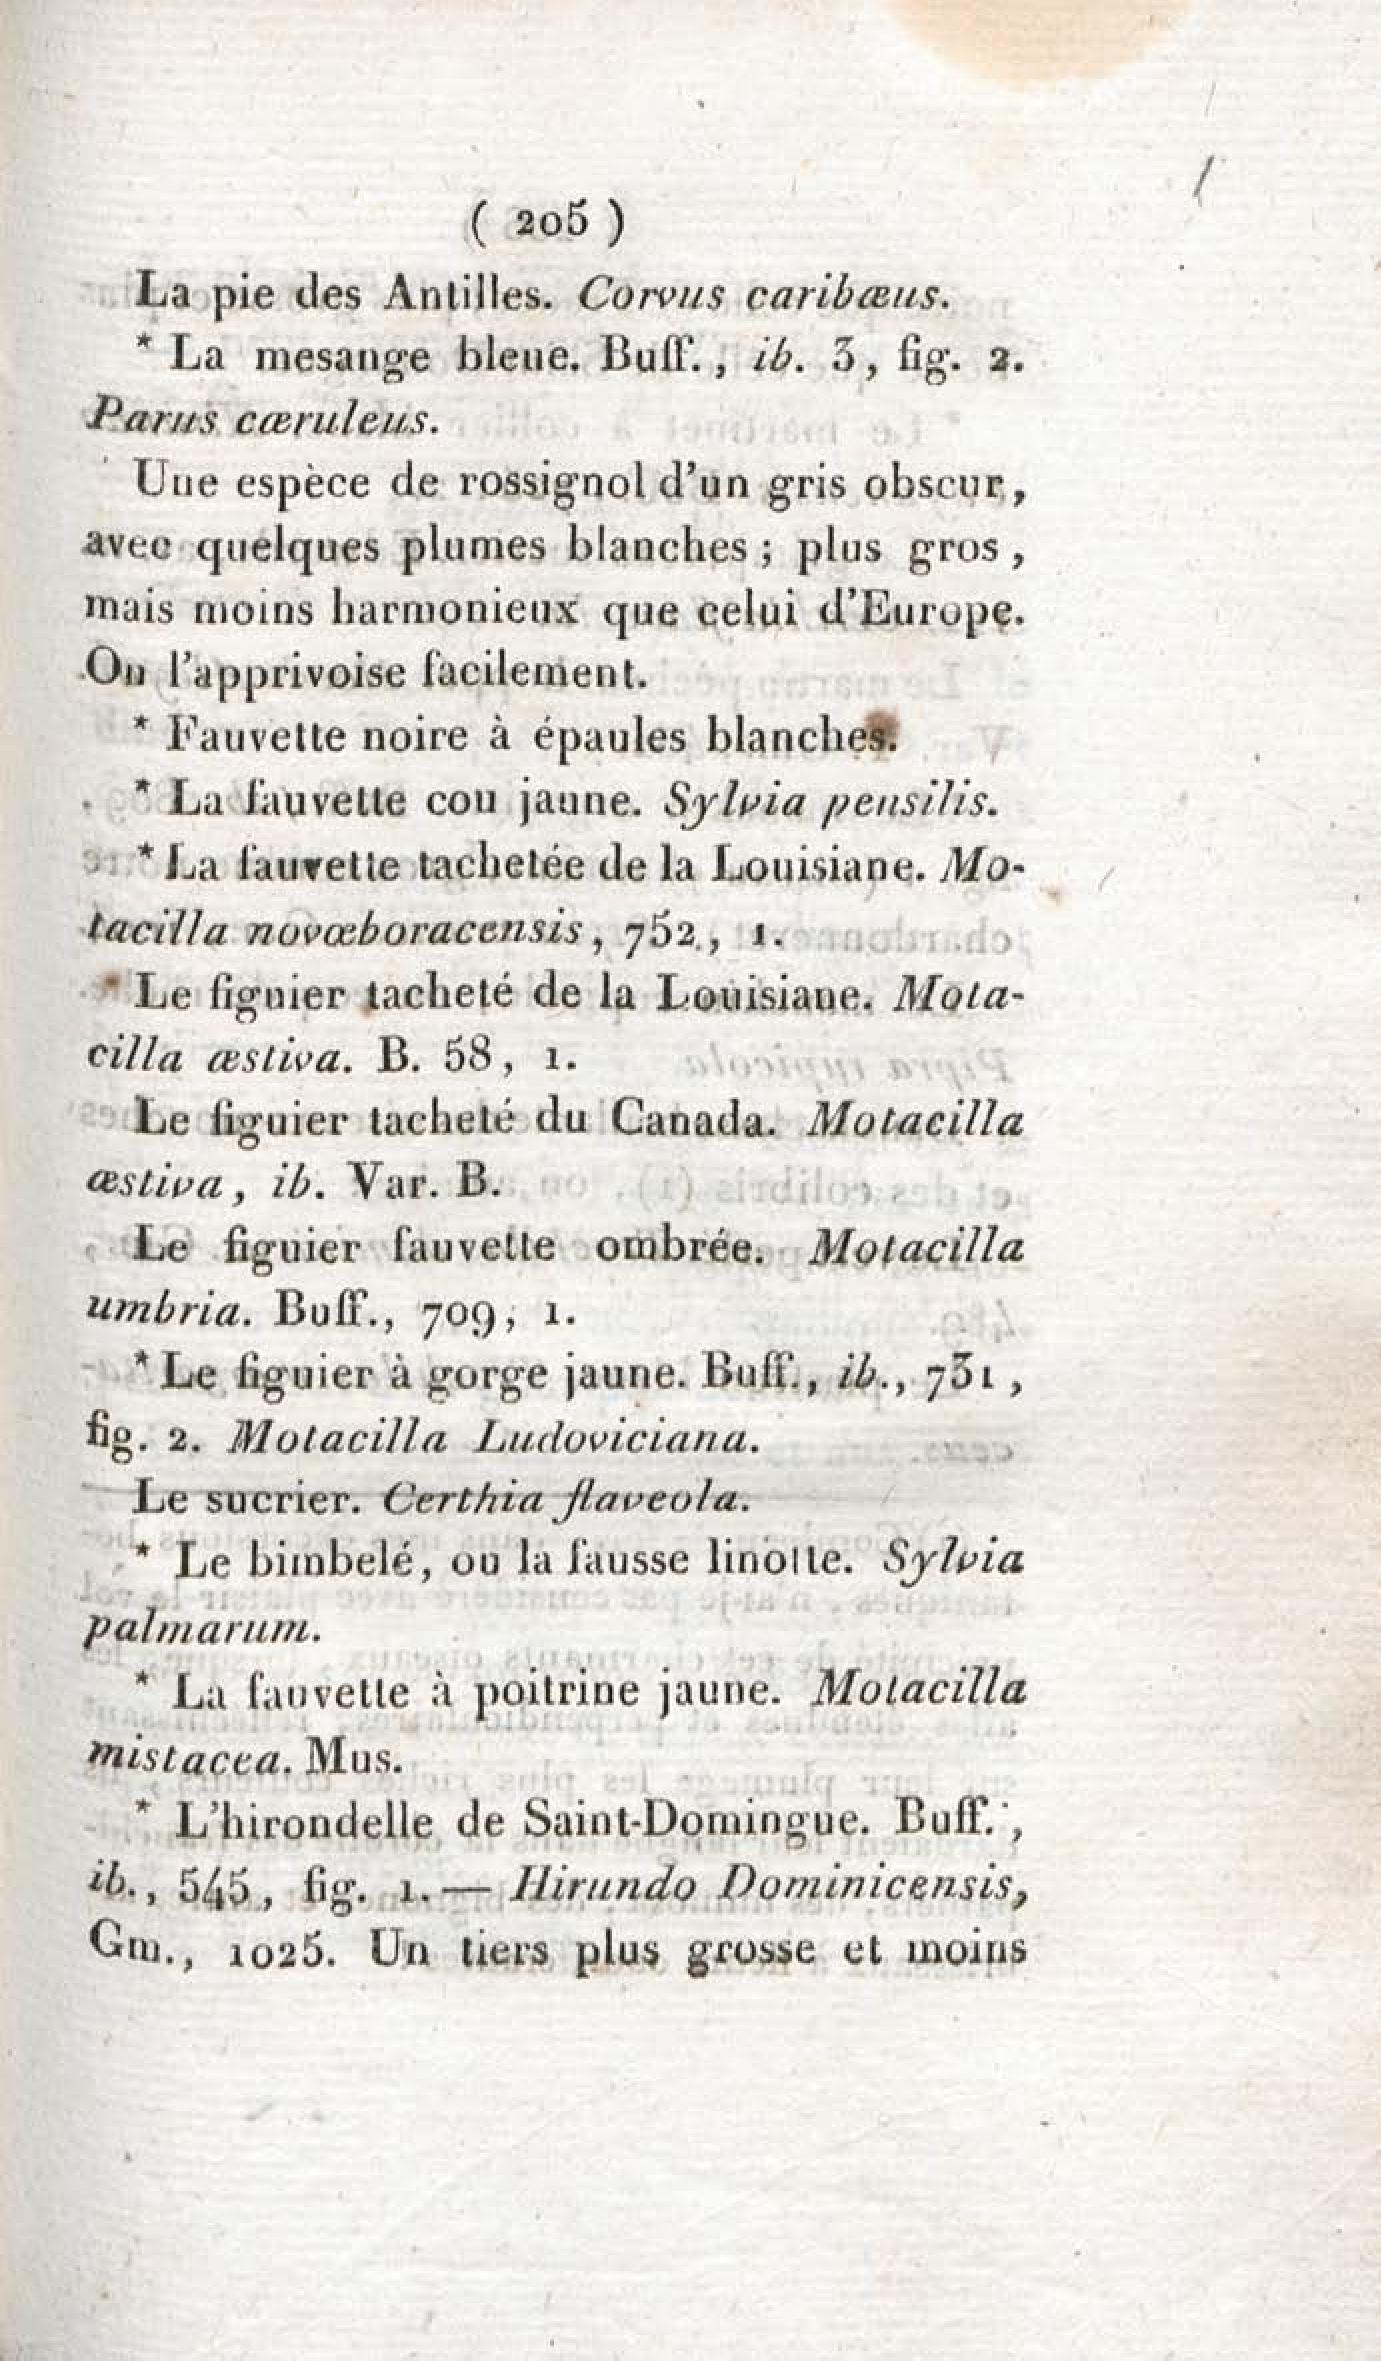 ( 205 )
La pie des Antilles. Corvus caribæus.
* La mesange bleue. Buff., ib. 3, fig. 2.
Parus cæruleus.
Une espèce de rossignol d'un gris obscur,
avec quelques plumes blanches ; plus gros,
mais moins harmonieux que celui d'Europe.
On l'apprivoise facilement.
* Fauvette noire à épaules blanches.
* La fauvette cou jaune. Sylvia pensilis.
* La fauvette tachetée de la Louisiane. Mo-
tacilla novæboracensis, 752, 1.
* Le figuier tacheté de la Louisiane. Mota-
cilla æstiva. B. 58, 1.
Le figuier tacheté du Canada. Motacilla
æstiva, ib. Var. B.
Le figuier fauvette ombrée. Motacilla
umbria. Buff., 709, 1.
* Le figuier à gorge jaune. Buff., ib., 731,
fig. 2. Motacilla Ludoviciana.
Le sucrier. Certhia flaveola.
* Le bimbelé, ou la fausse linotte. Sylvia
palmarum.
* La fauvette à poitrine jaune. Motacilla
mistacea. Mus.
* L'hirondelle de Saint-Domingue. Buff.,
ib., 545, fig. 1. — Hirundo Dominicensis,
Gm., 1025. Un tiers plus grosse et moins